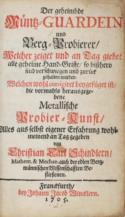 Der geheimbde
Müntz-GUARDEIN
und
Berg-Probierer/
Welcher zeiget und an Tag giebet
alle geheime Hand-Griffe/ so bißhero
sind verschwiegen und zurück
gehalten worden
Welchen wohlmeinend beygefüget ist
die vormahls herausgege-
bene
Metallische
Probier-Kunst/
Alles aus selbst eigener Erfahrung wohl-
meinend an Tag gegeben
von
Christian Carl Schindlern/
Franckfurth/
bey Johann Jacob
1705.